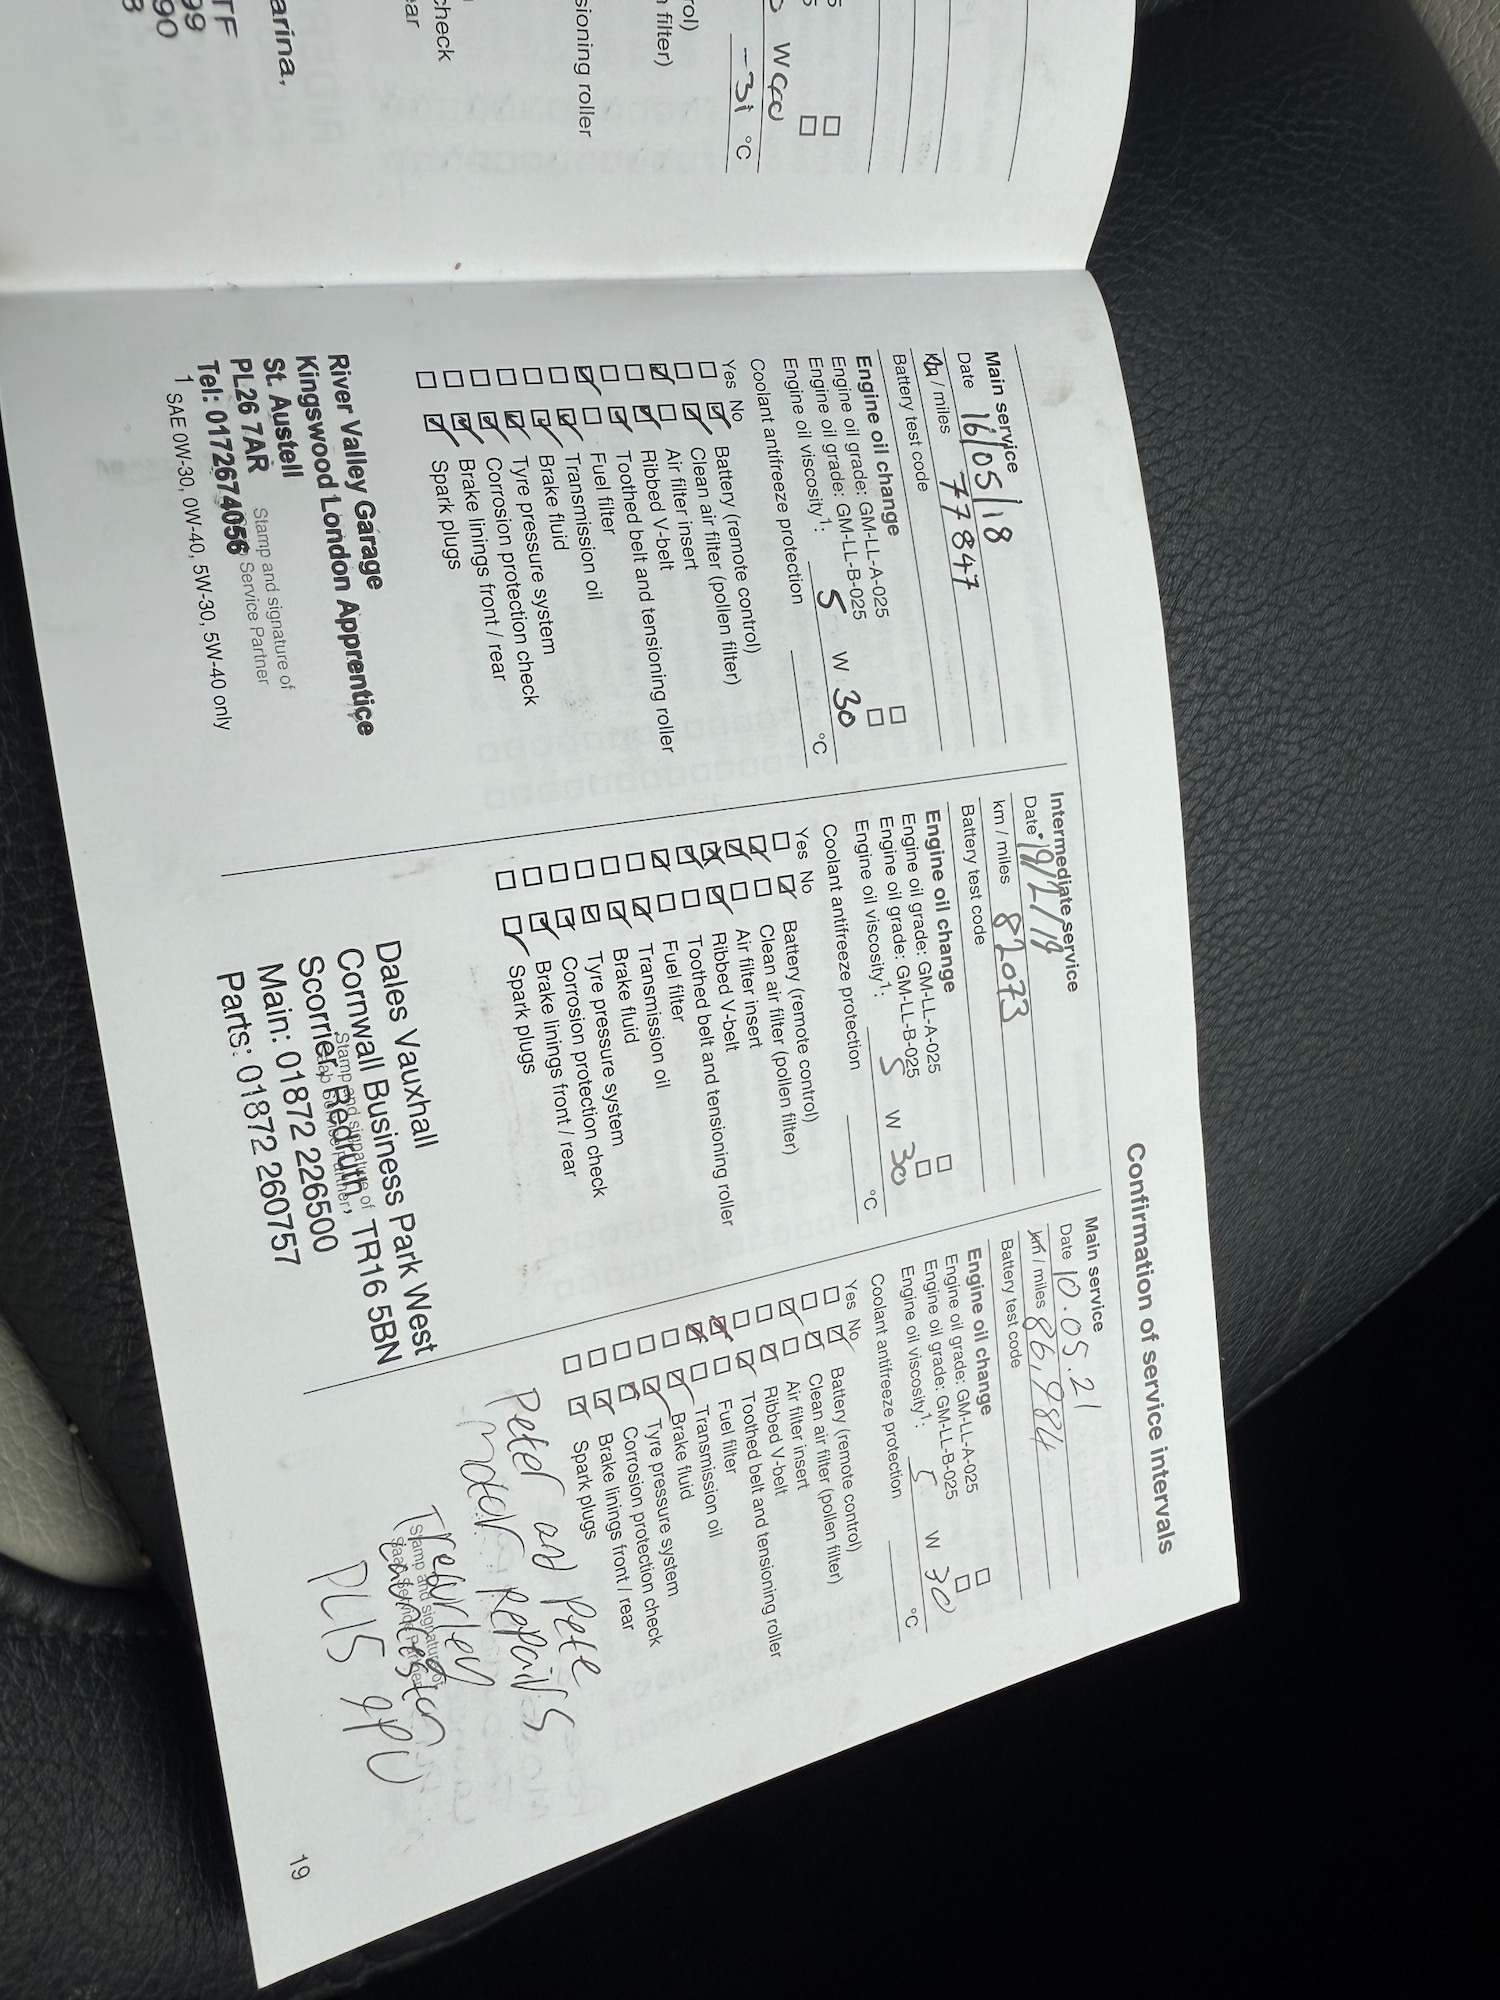 Confirmation of service intervals
Main service
Date 16/05/18
km / miles 77847
Battery test code
Engine oil change
Engine oil grade: GM-LL-A-025 ☐
Engine oil grade: GM-LL-B-025 ☐
Engine oil viscosity1: 5 W 30
Coolant antifreeze protection °C
Yes No
☐ ☑ Battery (remote control)
☐ ☑ Clean air filter (pollen filter)
☑ ☐ Air filter insert
☐ ☑ Ribbed V-belt
☐ ☑ Toothed belt and tensioning roller
☑ ☐ Fuel filter
☐ ☑ Transmission oil
☐ ☑ Brake fluid
☐ ☑ Tyre pressure system
☐ ☑ Corrosion protection check
☐ ☑ Brake linings front / rear
☐ ☑ Spark plugs
River Valley Garage
Kingswood London Apprentice
St. Austell
PL26 7AR
Tel: 0172674056
Stamp and signature of
Service Partner
1 SAE 0W-30, 0W-40, 5W-30, 5W-40 only
Intermediate service
Date 19/2/19
km / miles 82073
Battery test code
Engine oil change
Engine oil grade: GM-LL-A-025 ☐
Engine oil grade: GM-LL-B-025 ☐
Engine oil viscosity1: 5 W 30
Coolant antifreeze protection °C
Yes No
☐ ☑ Battery (remote control)
☑ ☐ Clean air filter (pollen filter)
☑ ☐ Air filter insert
☑ ☑ Ribbed V-belt
☑ ☐ Toothed belt and tensioning roller
☑ ☐ Fuel filter
☐ ☑ Transmission oil
☐ ☑ Brake fluid
☐ ☑ Tyre pressure system
☐ ☑ Corrosion protection check
☐ ☑ Brake linings front / rear
☐ ☑ Spark plugs
Dales Vauxhall
Cornwall Business Park West
Scorrier, Redruth, TR16 5BN
Main: 01872 226500
Parts: 01872 260757
Stamp and signature of
Main service
Date 10.05.21
km / miles 86,984
Battery test code
Engine oil change
Engine oil grade: GM-LL-A-025 ☐
Engine oil grade: GM-LL-B-025 ☐
Engine oil viscosity1: 5 W 30
Coolant antifreeze protection °C
Yes No
☐ ☑ Battery (remote control)
☐ ☑ Clean air filter (pollen filter)
☑ ☐ Air filter insert
☐ ☑ Ribbed V-belt
☐ ☑ Toothed belt and tensioning roller
☑ ☐ Fuel filter
☑ ☐ Transmission oil
☐ ☑ Brake fluid
☐ ☑ Tyre pressure system
☐ ☑ Corrosion protection check
☐ ☑ Brake linings front / rear
☐ ☑ Spark plugs
Peter and Pete
Motor Repairs
Launceston
PL15
Stamp and signature of
19
-31 °C
filter)
sioning roller
check
ear
arina,
TF
99
90